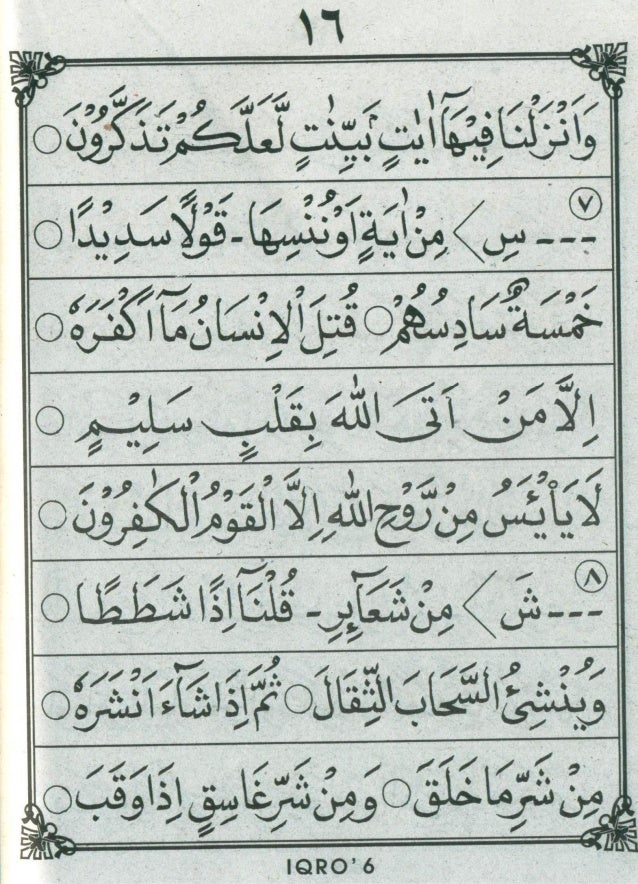 ١٦
وَاَنْزَلْنَا فِيْهَآ اٰيٰتٍۢ بَيِّنٰتٍ لَّعَلَّكُمْ تَذَكَّرُوْنَ ○
٧
--- سِ > مِنْ اٰيَةٍ اَوْ نُنْسِهَا - قَوْلًا سَدِيْدًا ○
خَمْسَةٌ سَادِسُهُمْ ○ قُتِلَ الْاِنْسَانُ مَآ اَكْفَرَهٗ ○
اِلَّا مَنْ اَتَى اللّٰهَ بِقَلْبٍ سَلِيْمٍ ○
لَا يَا۟يْـَٔسُ مِنْ رَّوْحِ اللّٰهِ اِلَّا الْقَوْمُ الْكٰفِرُوْنَ ○
٨
--- شَ > مِنْ شَعَآىِٕرِ - قُلْنَآ اِذًا شَطَطًا ○
وَيُنْشِئُ السَّحَابَ الثِّقَالَ ○ ثُمَّ اِذَا شَآءَ اَنْشَرَهٗ ○
مِنْ شَرِّ مَا خَلَقَ ○ وَمِنْ شَرِّ غَاسِقٍ اِذَا وَقَبَ ○
IQRO' 6